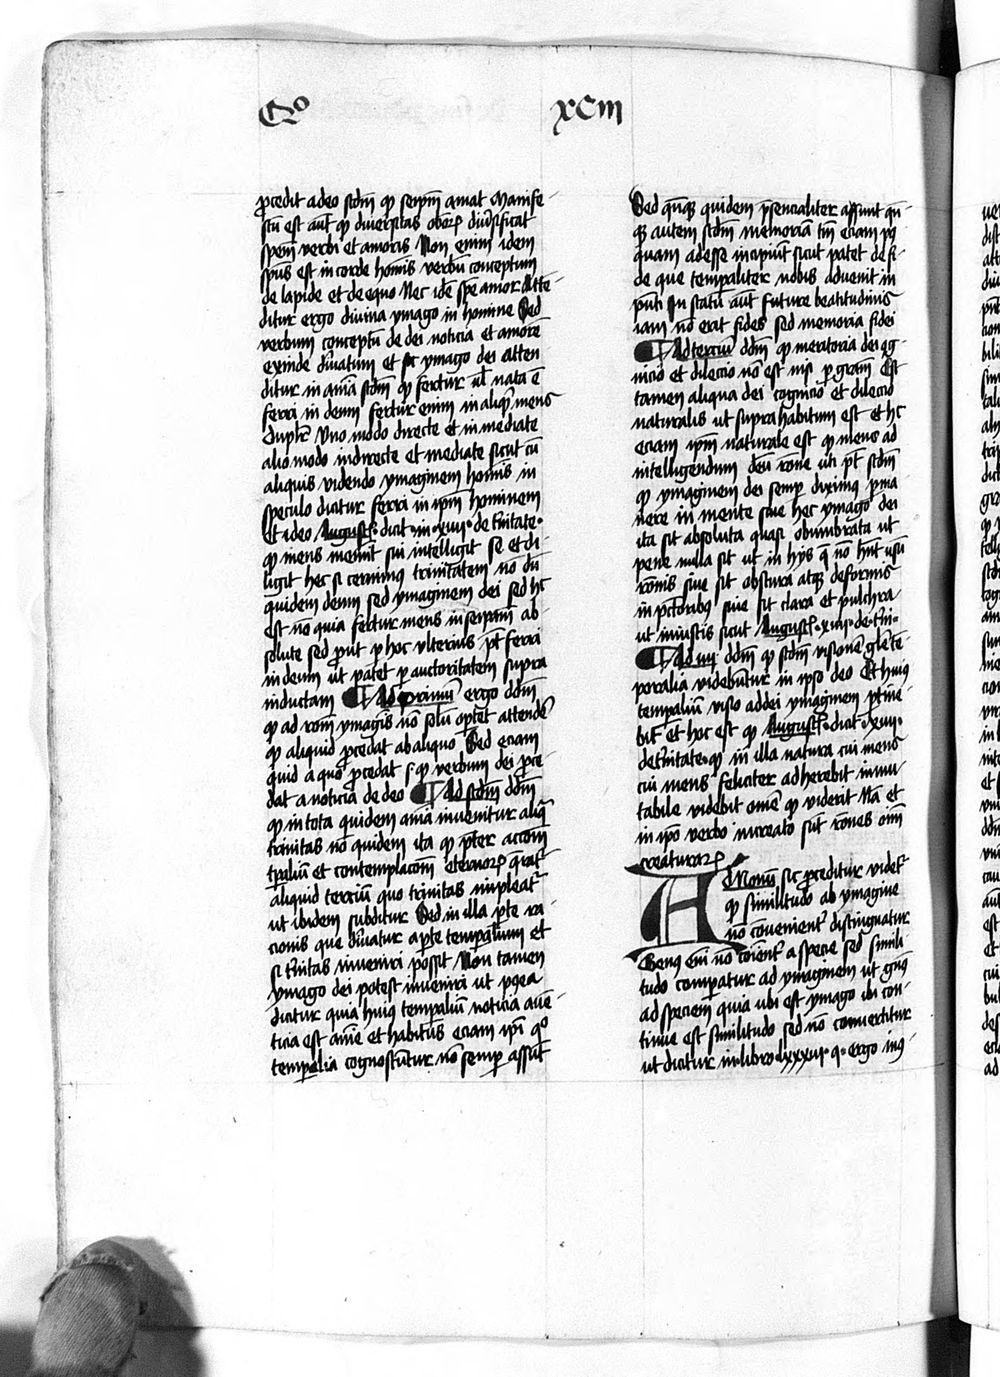 Qo xciii
procedit adeo scdm qp seipm amat Manife-
stu est aut qp diversitas obiecor diversificat
spem verbi et amoris Non enim idem
spus est in corde homis verbu conceptum
de lapide et de equo Nec ide spe amor Atte-
ditur ergo divina ymago in homine Sed
verbum conceptu de dei noticia et amore
exinde derivatum et sic ymago dei atten
ditur in aia scdm qp fertur vel nata e
ferri in deum fertur enim in aliqp mens
duplr Uno modo directe et in mediate
alio modo indirecte et mediate sicut cu
aliquis videndo ymaginem homis in
speculo dicitur ferri in ipm hominem
Et ideo August9 dicit in xiiii de trinitate
qp mens meminit sui intelligit se et di-
ligit hec si cernimus trinitatem no du
quidem deum sed ymaginem dei sed hc
est no quia fertur mens in seipam ab
solute sed prout p hoc ulterius pt ferri
in deum ut patet p auctoritatem supra
inductam Ad primu ergo ddm
qp ad rom ymagis no solu optet attende
qp aliquid procedat ab aliquo Sed eciam
quid a quo procedat s qp verbum dei pce-
dat a noticia de deo Ad scdm ddm
qp in tota quidem aia invenitur aliq
trinitas no quidem ita qp pter accom
tpalium et contemplacom eternor qrat
aliquid tercium quo trinitas impleat
ut ibidem subditur Sed in illa pte ra
cionis que derivatur a pte temporalium et
si trinitas inveniri possit Non tamen
ymago dei potest inveniri ut postea
dicitur quia huius temporalium noticia adve-
ticia est anie et habitus eciam ipi quo
temporalia cognoscuntur no semp assut
Sed qnq quidem psencialiter assunt qn
q autem scdm memoriam tm eciam pq
quam adesse incipiunt sicut patet de fi-
de que temporaliter nobis advenit in
pnti In statu aut future beatitudinis
iam no erat fides sed memoria fidei
Ad terciu ddm qp meritoria dei cog-
nicio et dileccio no est nisi p gram Est
tamen aliqua dei cognicio et dileccio
naturalis ut supra habitum est et hc
eciam ipm naturale est qp mens ad
intelligendum deu rone uti pt scdm
qp ymaginem dei semp diximus pma
nere in mente sive hec ymago dei
ita sit absoluta quasi obumbrata ut
pene nulla sit ut in hys q no hnt usu
romis sive sit obscura atq deformis
in pctoribus sive sit clara et pulchra
ut in iustis sicut August9 xiiii de tri-
Ad iiii ddm qp scdm visione glie te
poralia videbutur in ipso deo Et huius
temporaliu visio ad dei ymaginem ptine-
bit Et hoc est qp August9 dicit xiiii
de trinitate qp in illa natura cui mens
cui mens feliciter adherebit inmu-
tabile videbit ome qp viderit Na et
in ipo verbo increato sut rones oim
creaturar
A Nonu sic proceditur videt
qp similitudo ab ymagine
no convenient distinguatur
Genus eni no convenient a specie sed simili-
tudo comparatur ad ymaginem ut gnus
ad speciem quia ubi est ymago ibi con-
tinue est similitudo sed no convertitur
ut dicitur in libro lxxxiii q ergo inq